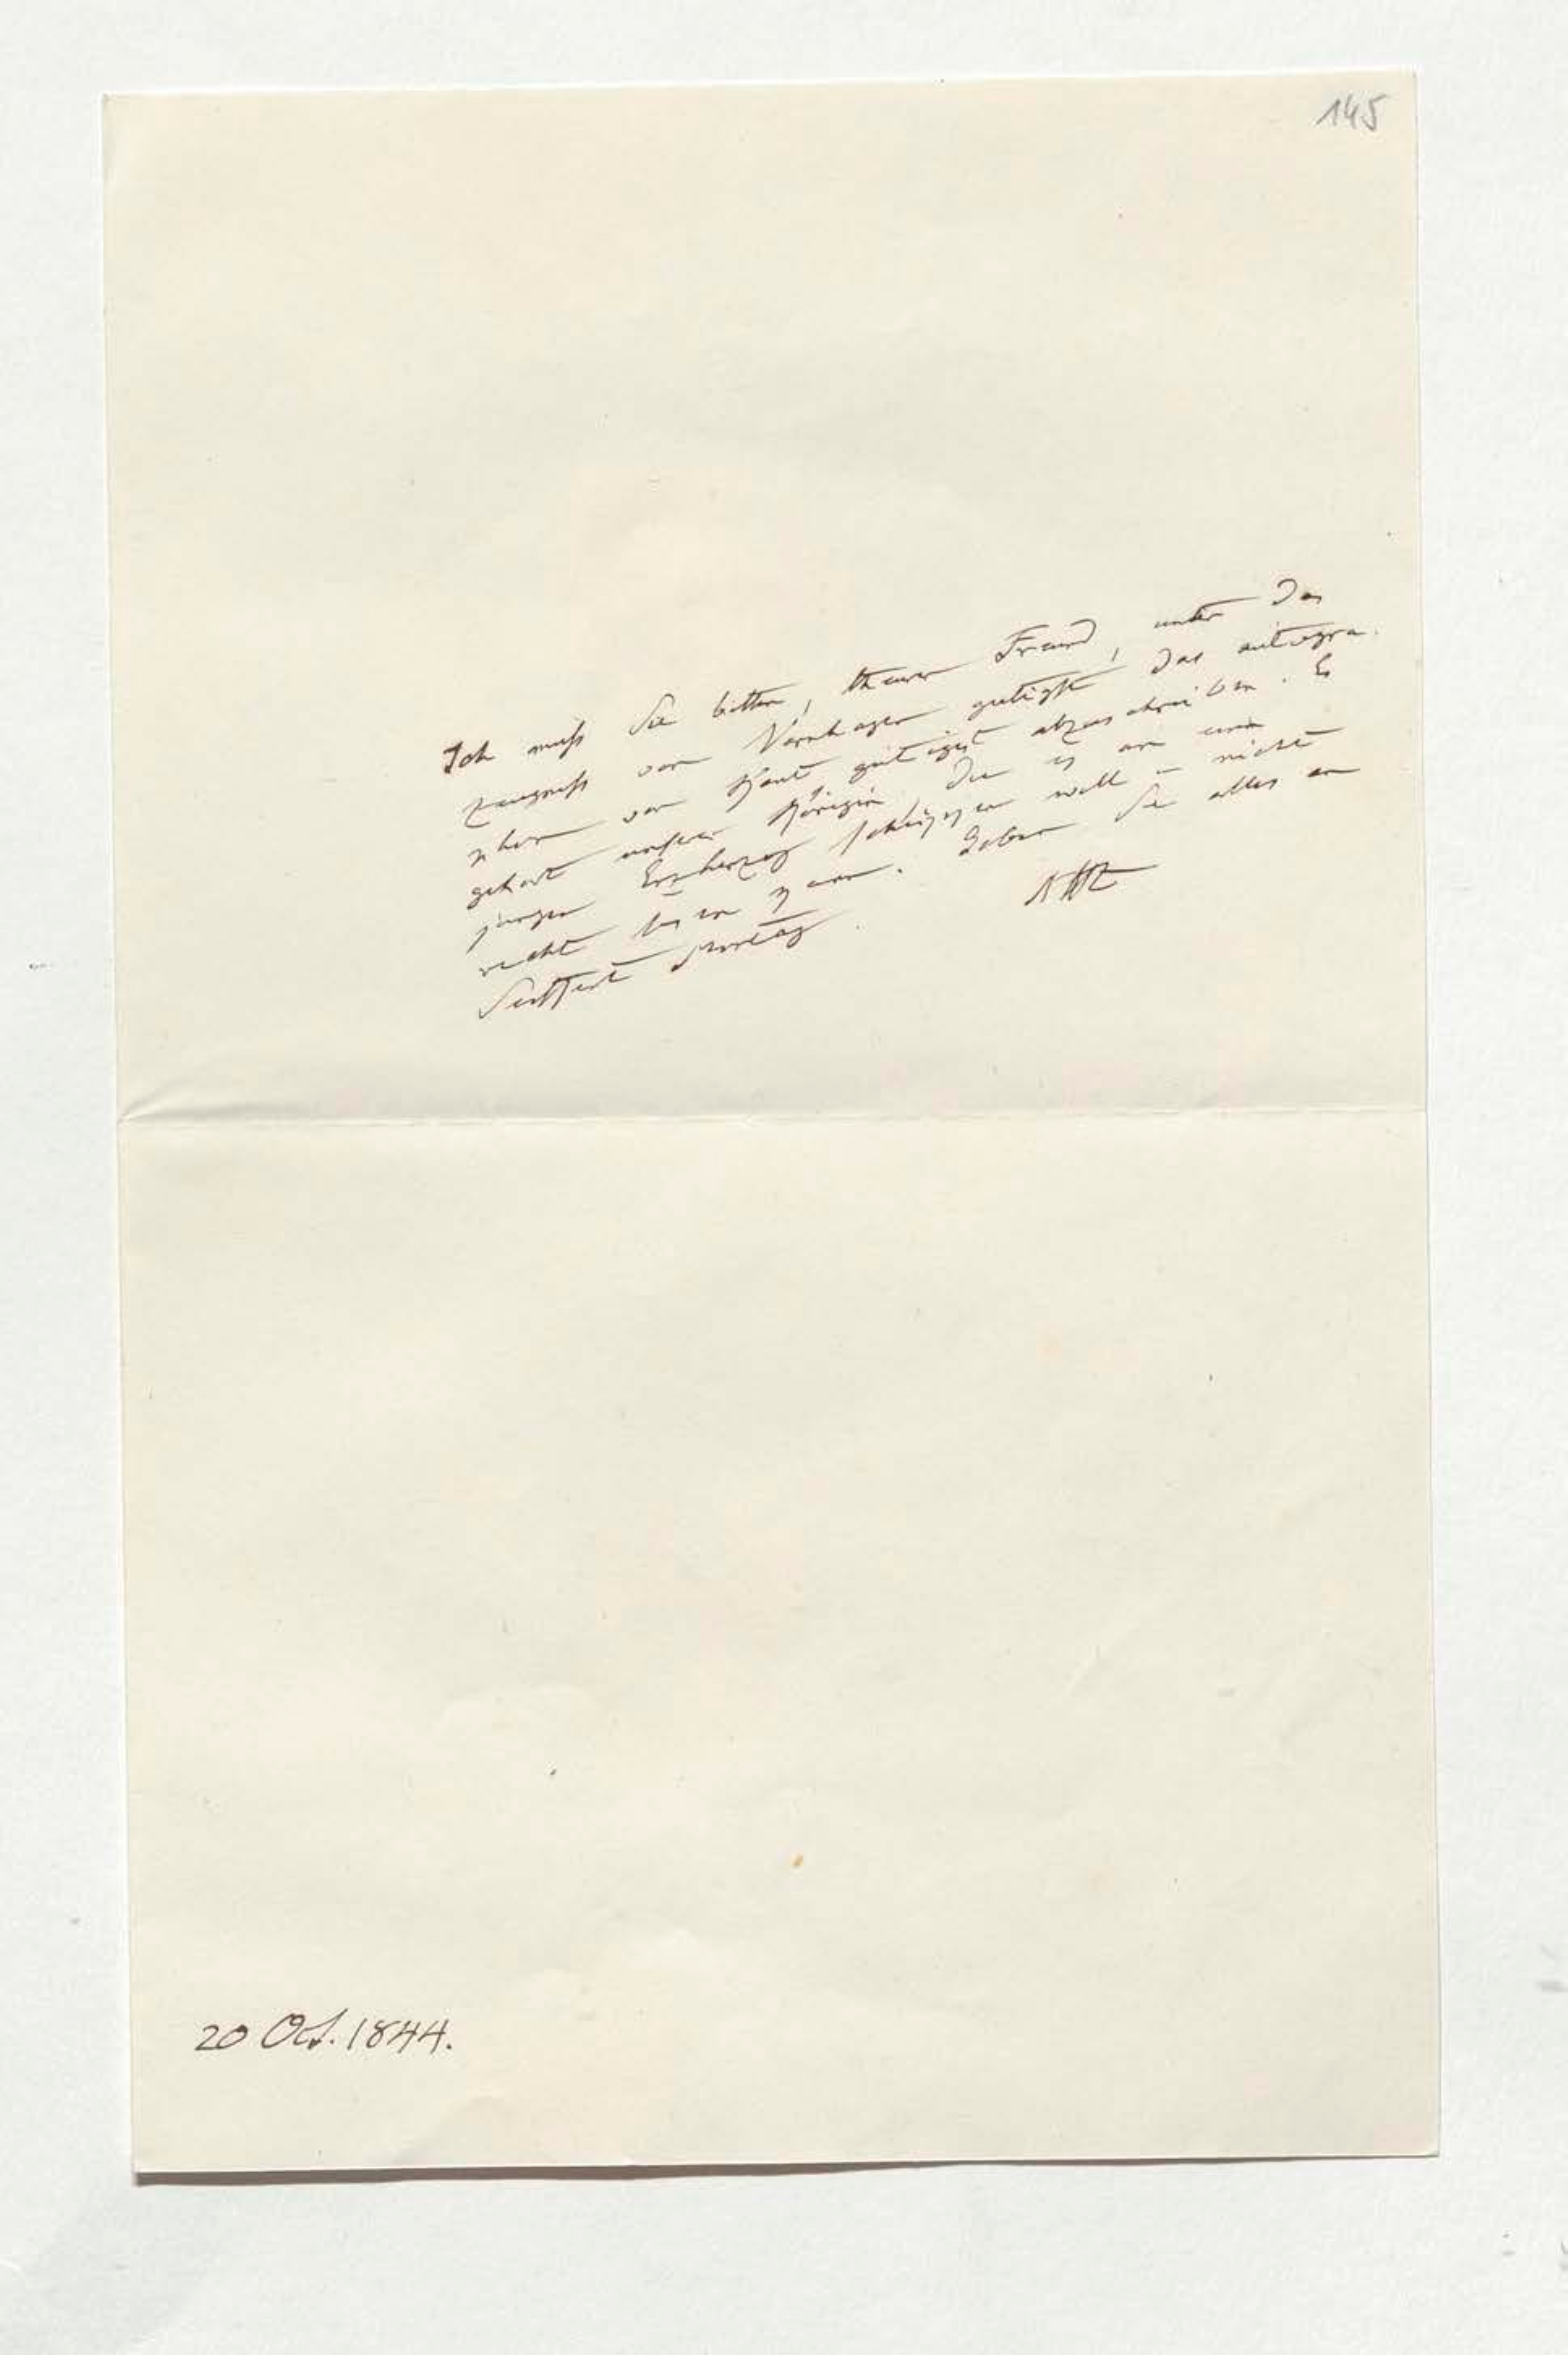 145
Ich muß Sie bitten, theurer Freund, unter das
Zeugniß von Varnhagen gütigst das autogra-
phon von Kant gütigst abzuschreiben. Es
gehört unserer Königin, die es an
jungen Erzherzog schenken will u nicht
recht lesen kann. Geben Sie alles an
Seiffert
AHt
20 Oct. 1844.